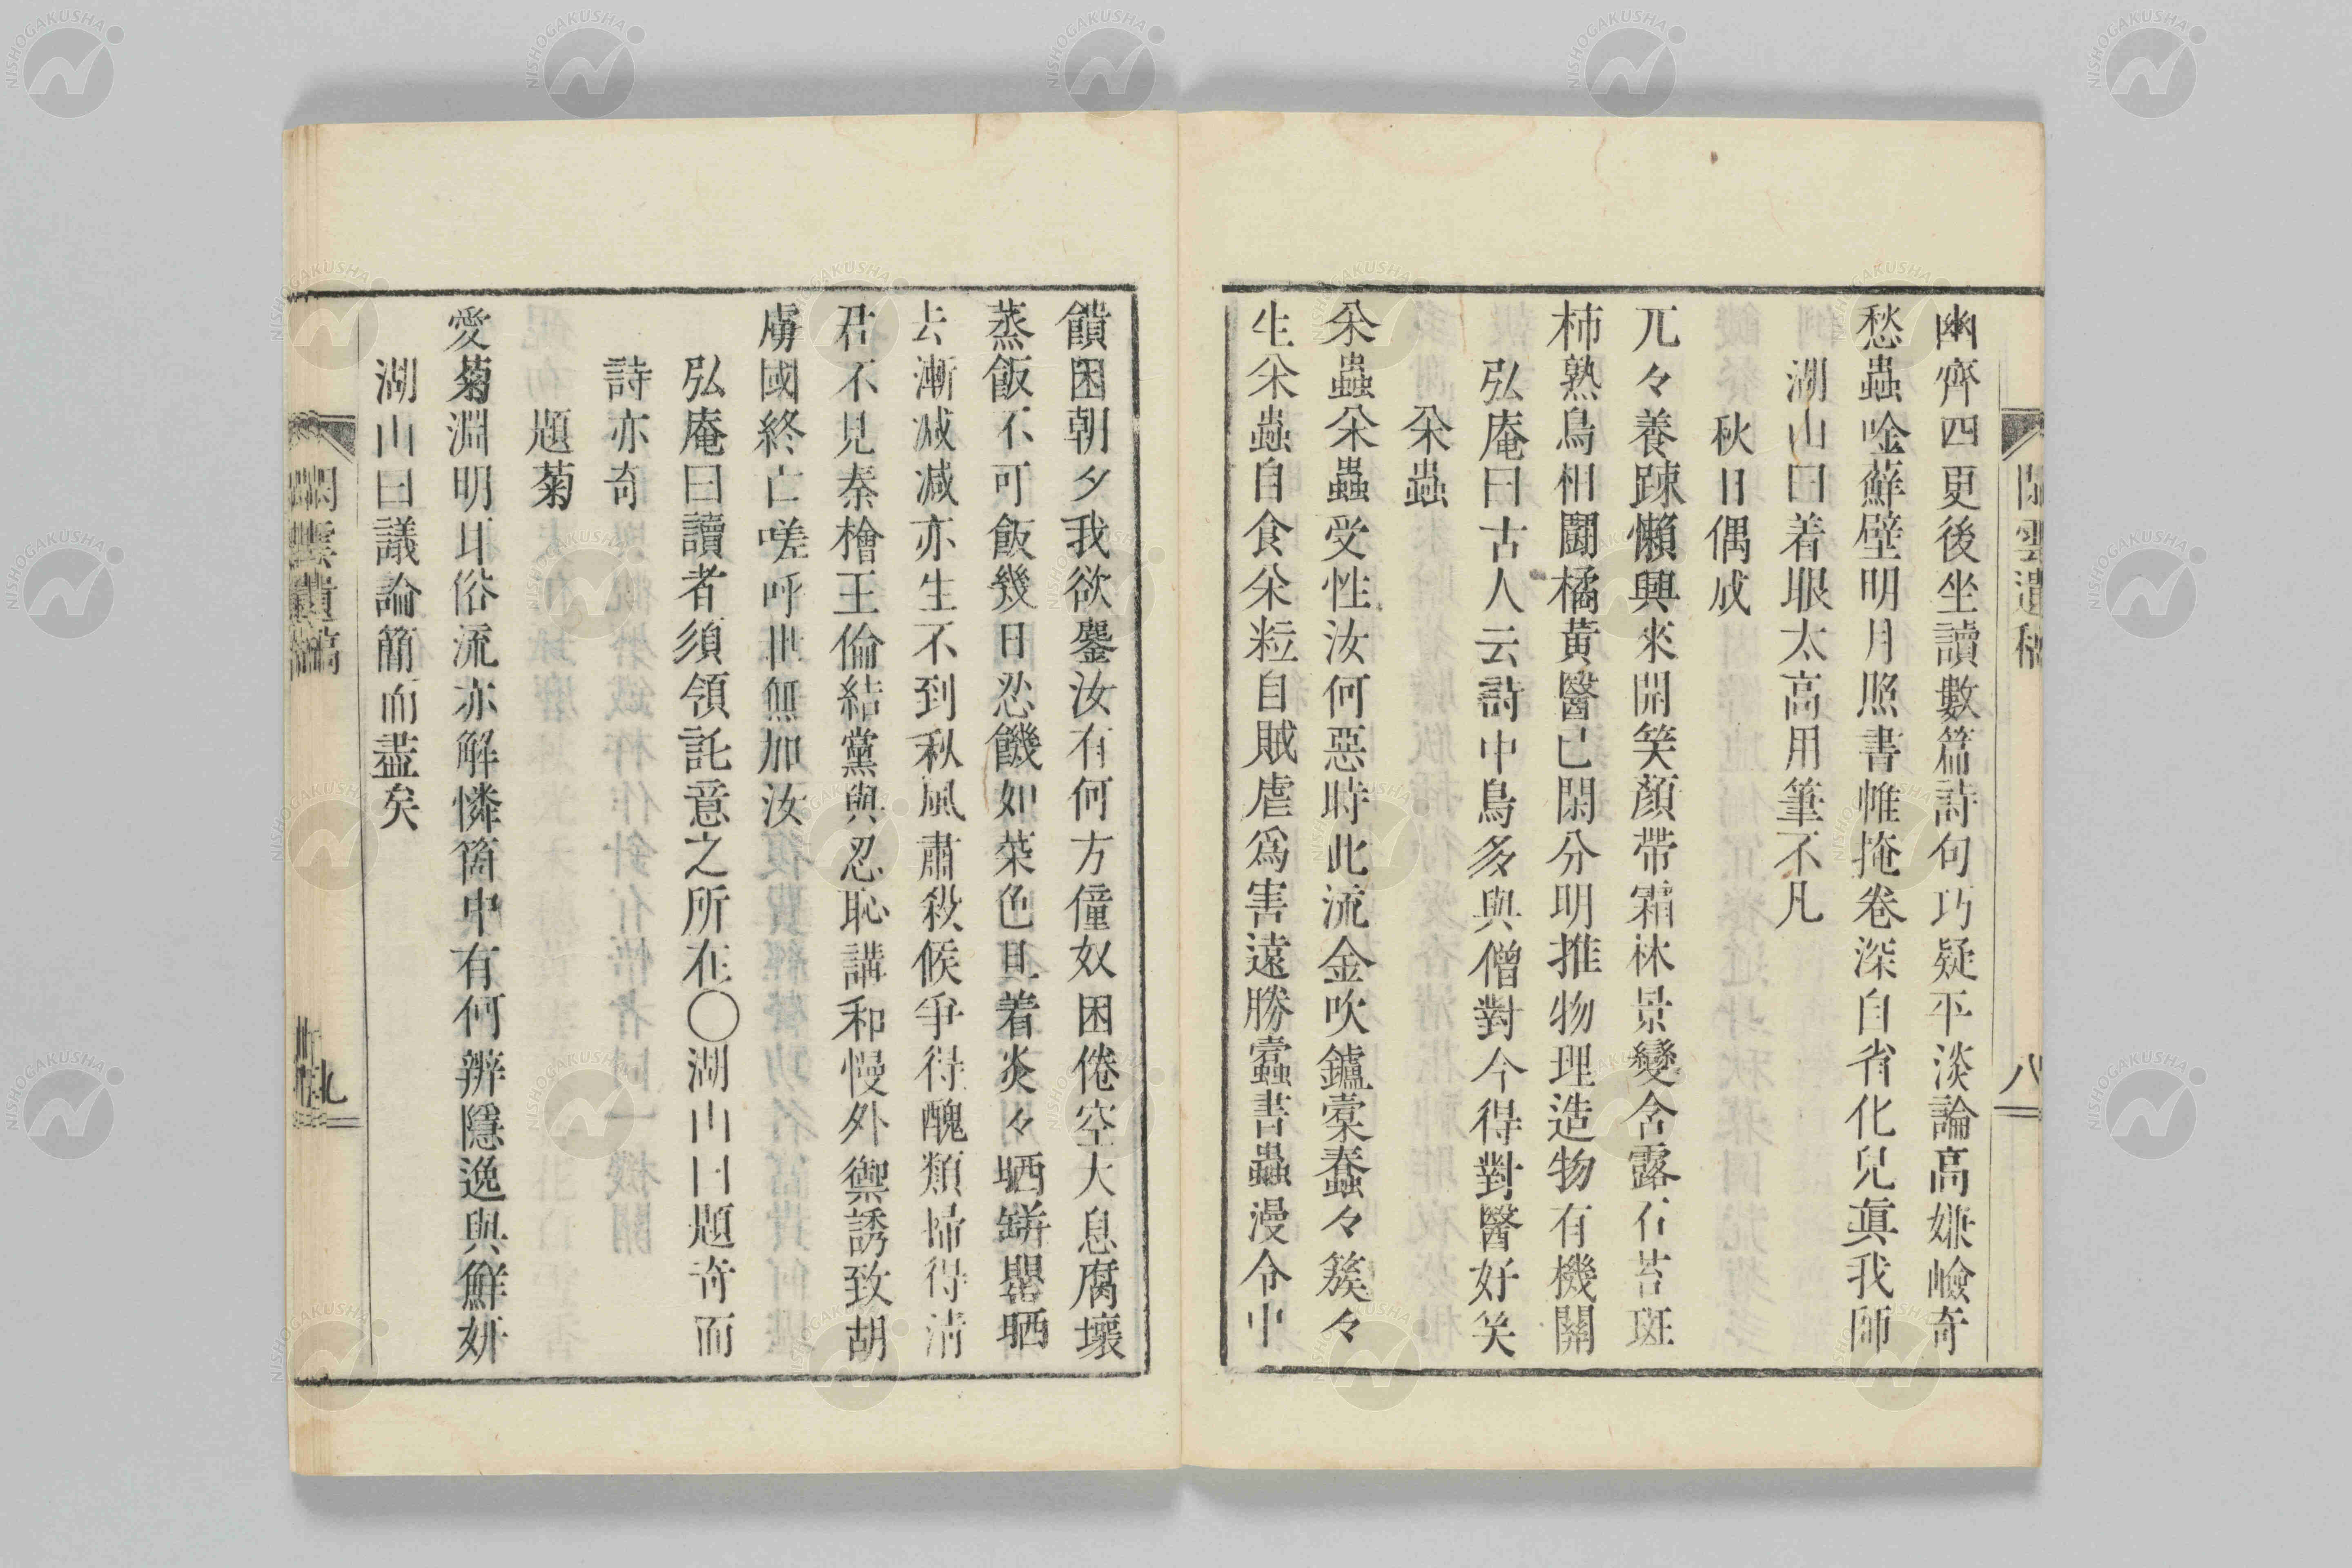 幽齊四更後坐讀數篇詩句巧疑平淡論高嫌嶮奇
愁蟲唫蘚壁明月照書帷掩卷深自省化兒眞我師
湖山曰着眼太高用筆不凡
秋日偶成
兀々養踈懶興來開笑顏帶霜林景變含露石苔斑
柿熟鳥相鬪橘黃醫已閑分明推物理造物有機關
弘庵曰古人云詩中鳥多與僧對今得對醫好笑
籴蟲
籴蟲籴蟲受性汝何惡時此流金吹鑪棠蠢々簇々
生籴蟲自食籴粒自賊虐爲害遠勝蠹書蟲漫令中
饋困朝夕我欲鏖汝有何方僮奴困倦空大息腐壞
蒸飯不可飯幾日忍饑如菜色且着炎々晒缾罌晒
去漸减减亦生不到秋風肅殺候爭得醜類掃得淸
君不見秦檜王倫結黨與忍恥講和慢外禦誘致胡
虜國終亡嗟呼世無加汝
弘庵曰讀者須領託意之所在〇湖山曰題奇而
詩亦奇
題菊
愛菊淵明耳俗流亦解憐箇中有何辨隱逸與鮮姸
湖山曰議論簡而盡矣
閑雲遺稿
八
閑雲遺稿
九
NISHOGAKUSHA